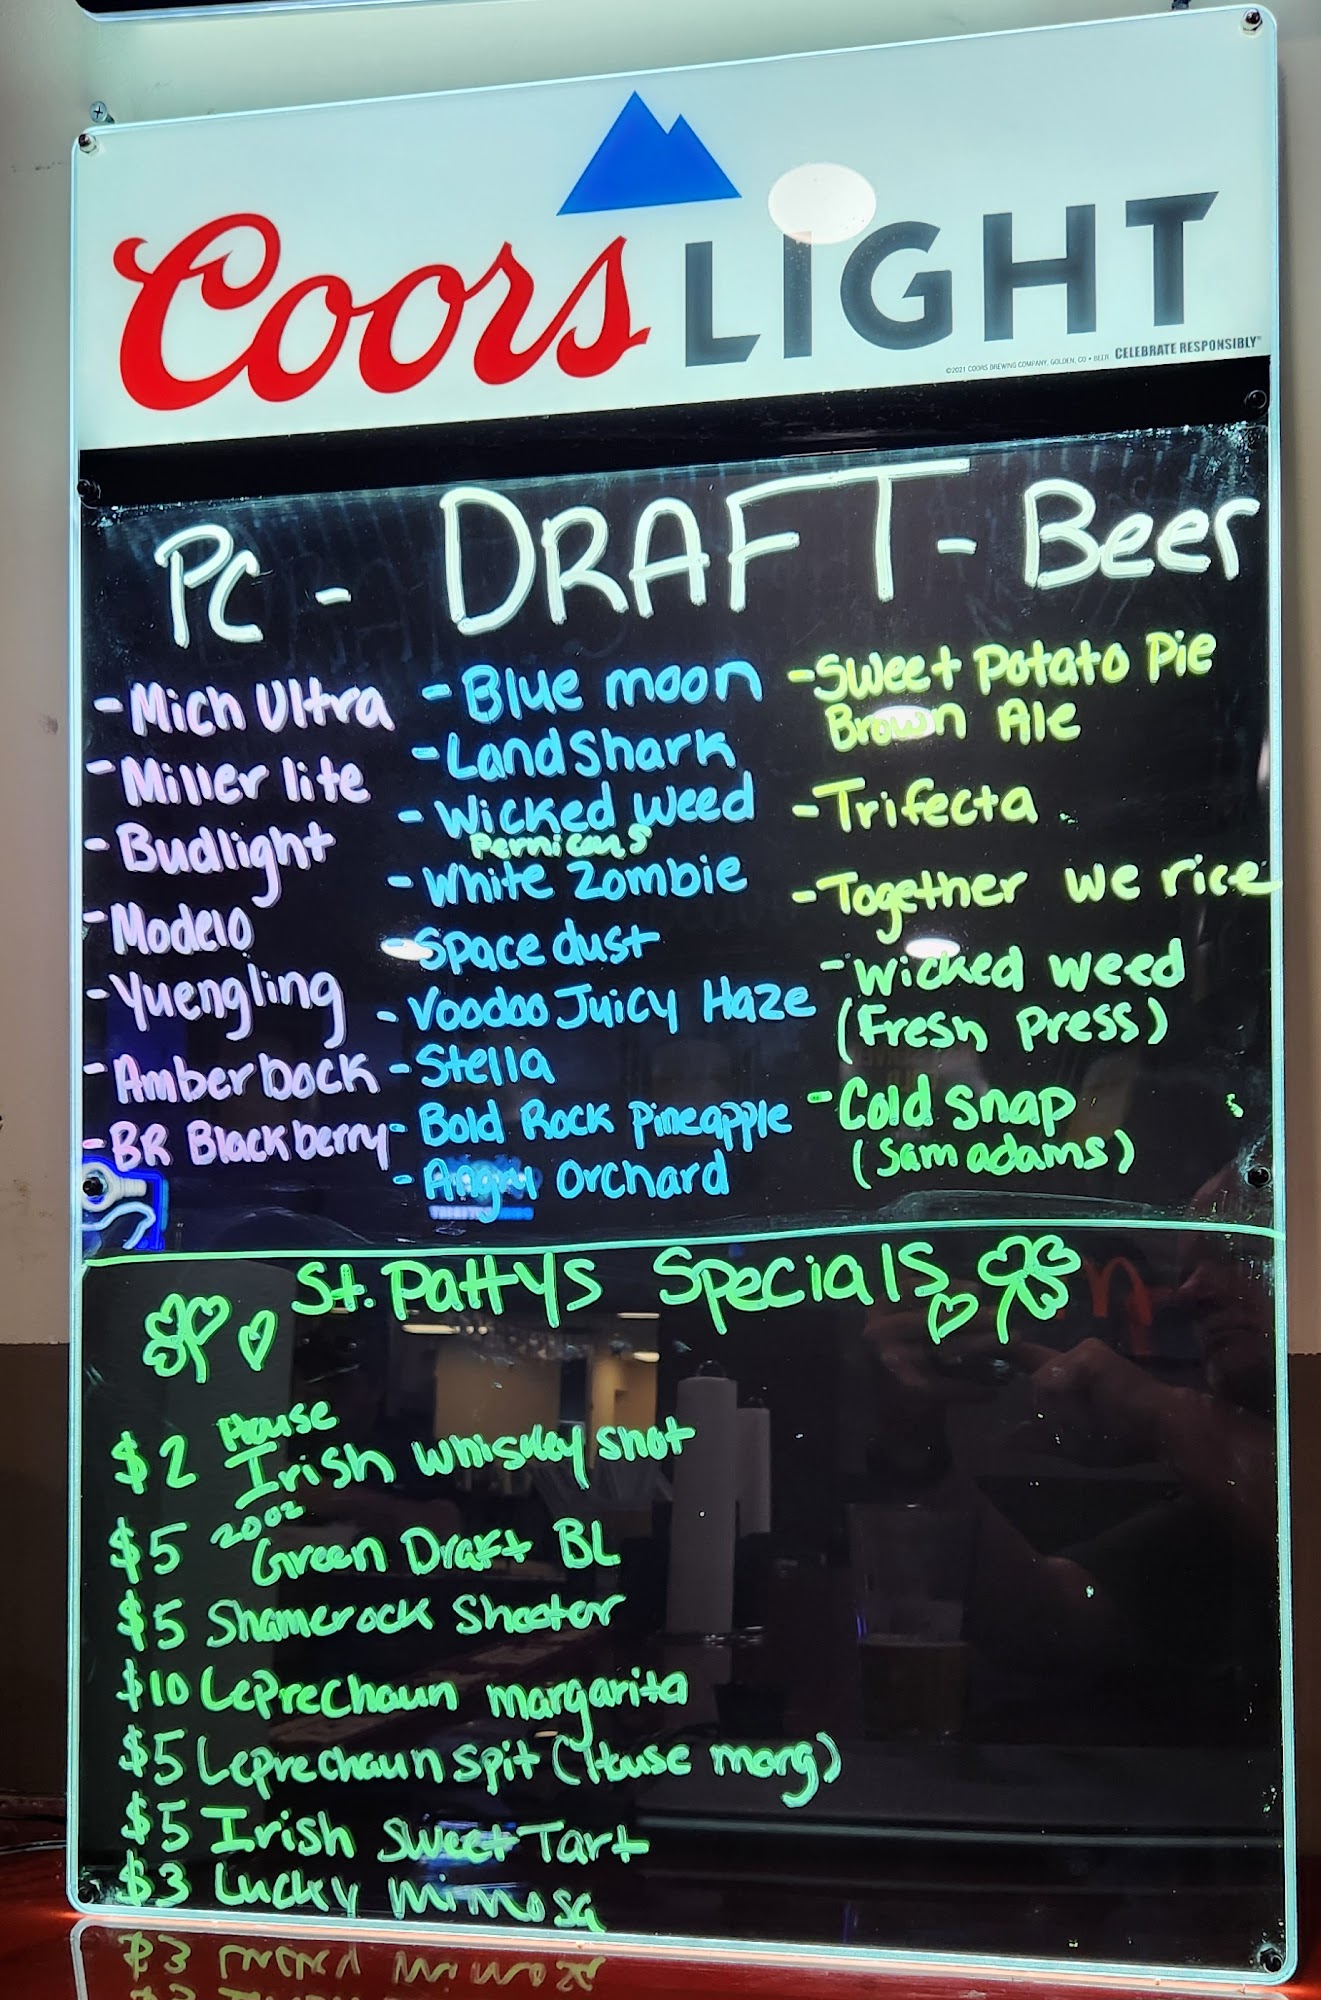 Coors LIGHT
©2021 COORS BREWING COMPANY, GOLDEN, CO • BEER CELEBRATE RESPONSIBLY®
PC - DRAFT - Beer
- Mich Ultra
- Miller lite
- Budlight
- Modelo
- Yuengling
- Amberbock
- BR Blackberry
- Blue moon
- Landshark
- Wicked weed
Pernicous
- White Zombie
- Space dust
- Voodoo Juicy Haze
- Stella
- Bold Rock Pineapple
- Angry Orchard
- Sweet Potato Pie
Brown Ale
- Trifecta
- Together we rice
- Wicked weed
(Fresh press)
- Cold snap
(Sam adams)
St. Pattys Specials
$2 House Irish whiskey shot
$5 20oz Green Draft BL
$5 Shamerock Shooter
$10 Leprechaun margarita
$5 Leprechaun spit (House marg)
$5 Irish Sweet Tart
$3 Lucky mimosa